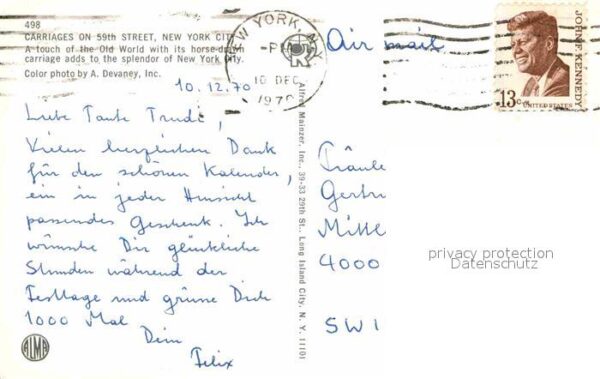 498
CARRIAGES ON 59th STREET, NEW YORK CITY
A touch of the Old World with its horse-drawn
carriage adds to the splendor of New York City.
Color photo by A. Devaney, Inc.
NEW YORK, N.Y.
-PM
10 DEC
1970
Air mail
JOHN F. KENNEDY
13c
UNITED STATES
10.12.70
Liebe Tante Trudi,
Vielen herzlichen Dank
für den schönen Kalender,
ein in jeder Hinsicht
passendes Geschenk. Ich
wünsche Dir glückliche
Stunden während der
Festtage und grüsse Dich
1000 Mal
Dein
Felix
ALMA
Alfred Mainzer, Inc., 39-33 29th St., Long Island City, N. Y. 11101
Fräule
Gertru
Mitte
4000
SWI
privacy protection
Datenschutz